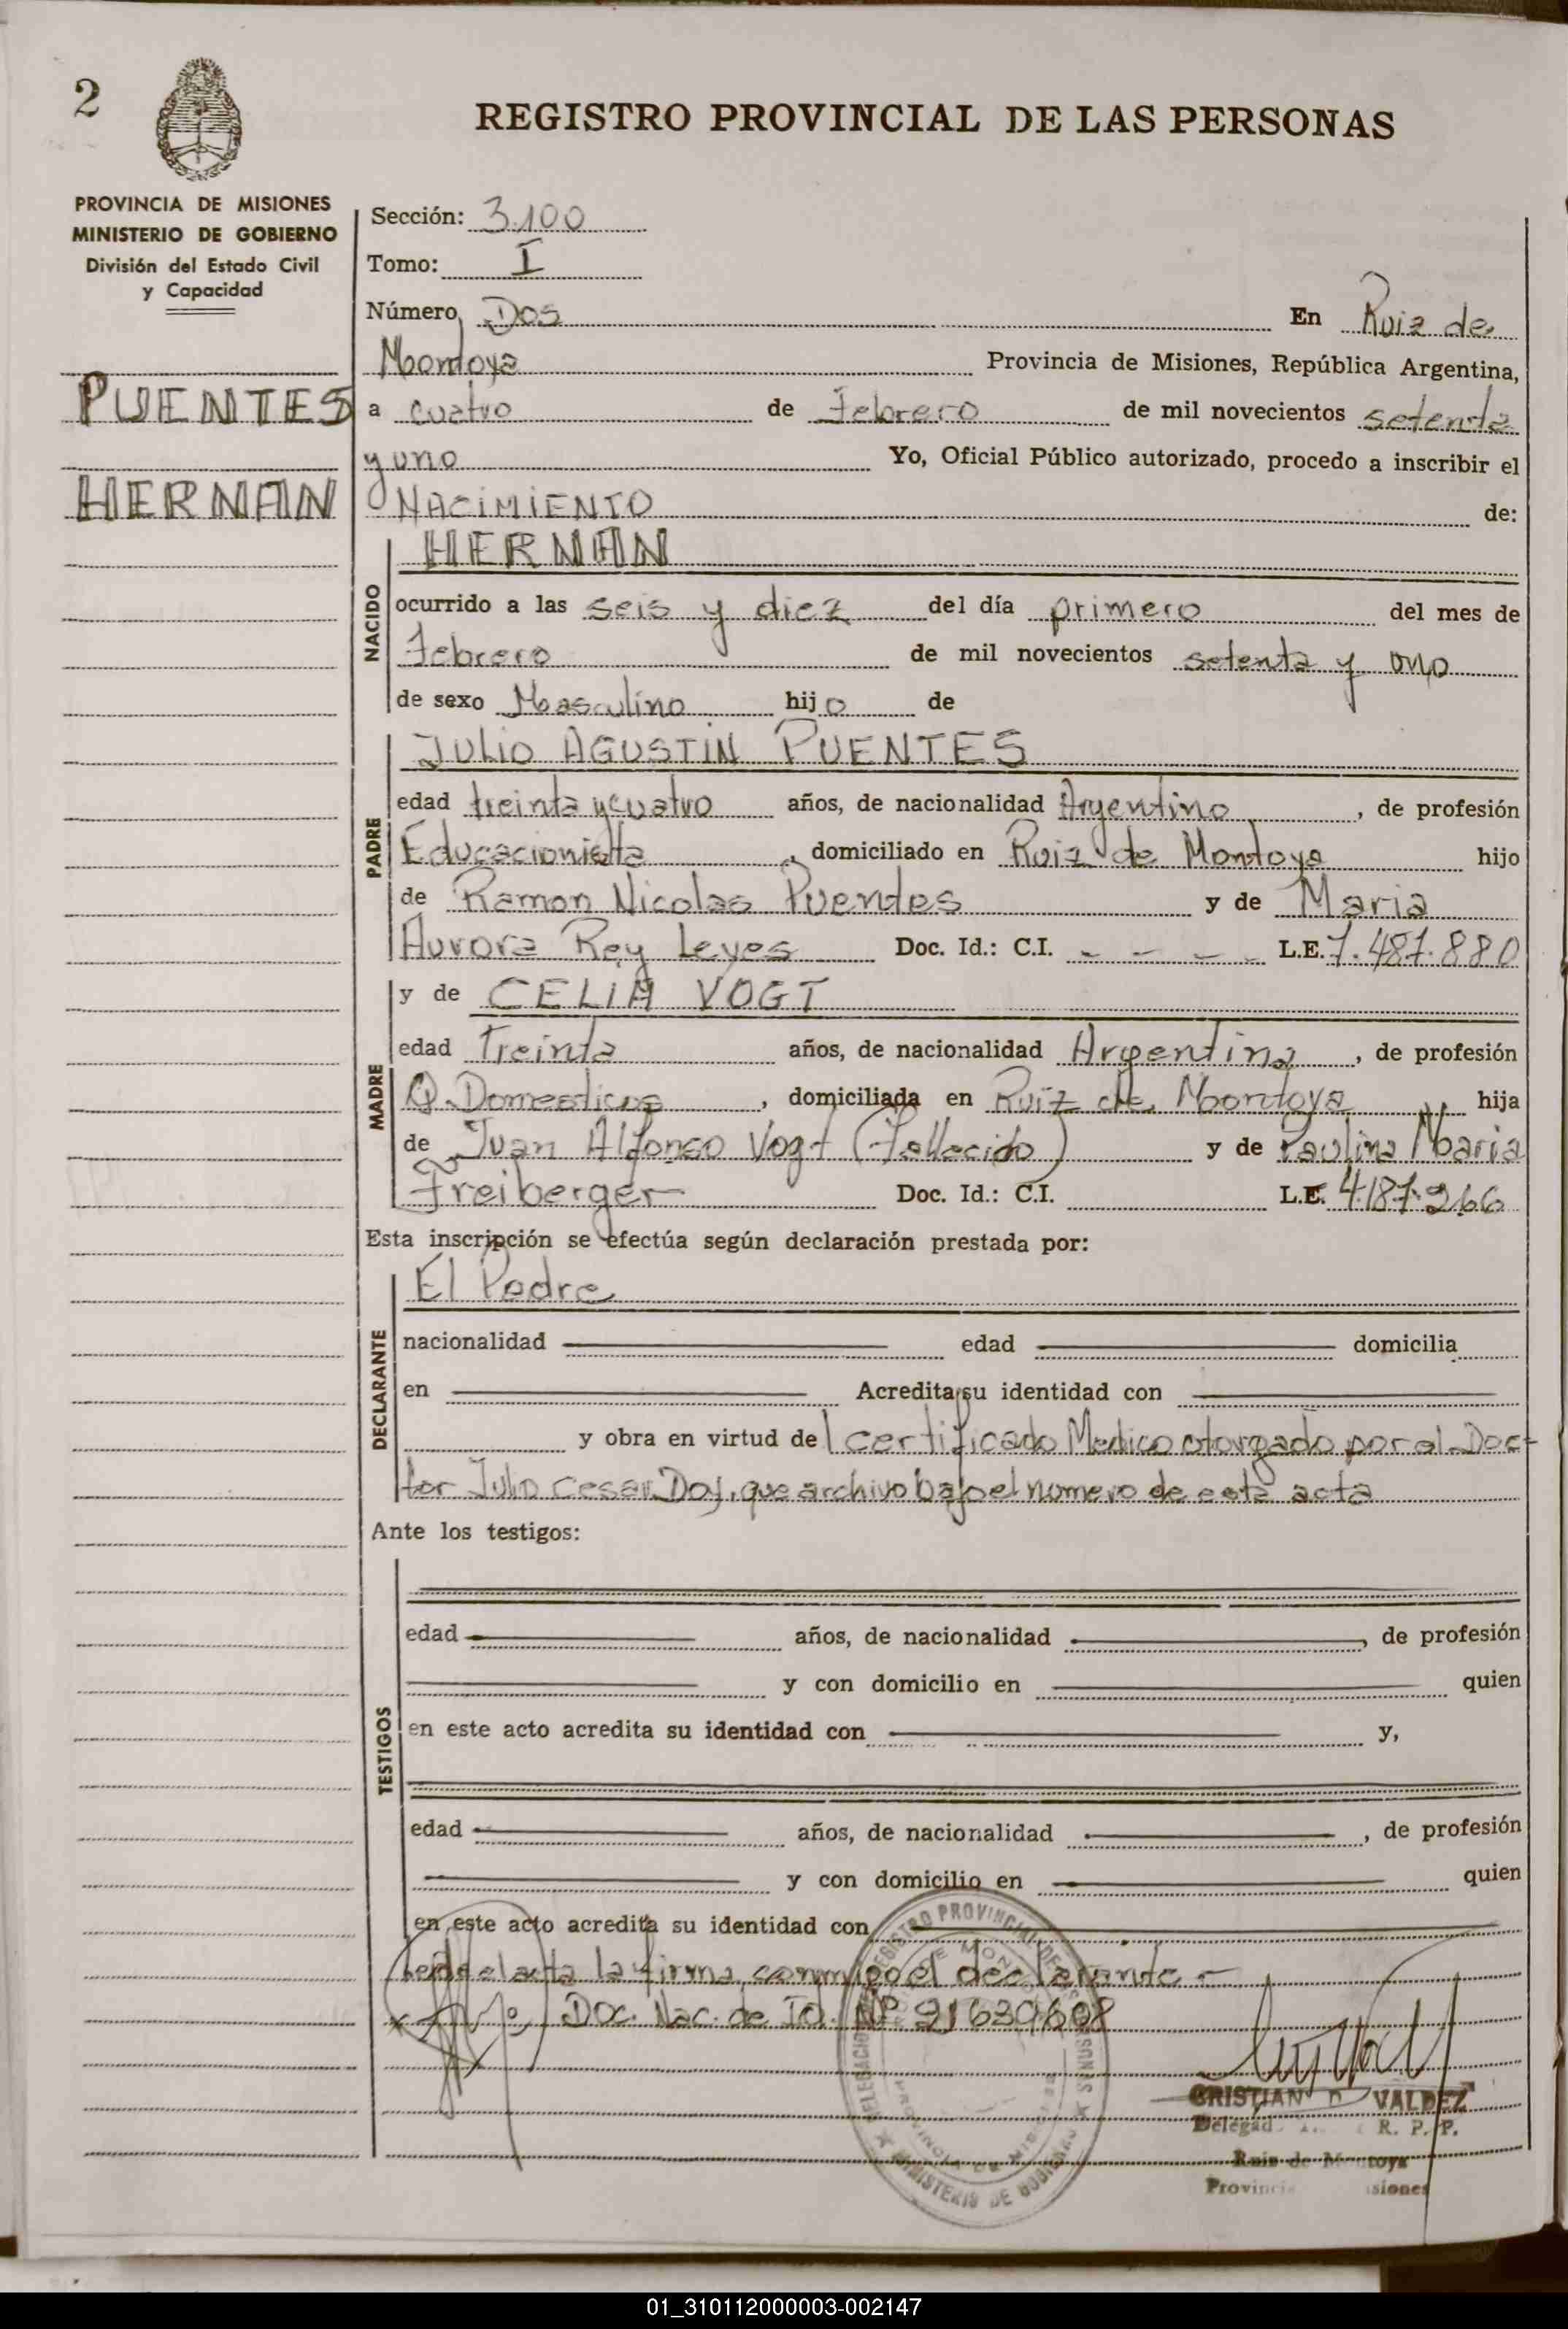 2
REGISTRO PROVINCIAL DE LAS PERSONAS
PROVINCIA DE MISIONES
MINISTERIO DE GOBIERNO
División del Estado Civil
y Capacidad
PUENTES
HERNAN
Sección: 3.100
Tomo: I
Número Dos En Ruiz de
Montoya Provincia de Misiones, República Argentina,
a cuatro de Febrero de mil novecientos setenta
y uno Yo, Oficial Público autorizado, procedo a inscribir el
NACIMIENTO de:
NACIDO
HERNAN
ocurrido a las seis y diez del día primero del mes de
Febrero de mil novecientos setenta y uno
de sexo Masculino hijo de
PADRE
JULIO AGUSTIN PUENTES
edad treinta y cuatro años, de nacionalidad Argentino, de profesión
Educacionista, domiciliado en Ruiz de Montoya hijo
de Ramon Nicolas Puentes y de Maria
Aurora Rey Leyes Doc. Id.: C.I. - - - - L.E. 7.487.880
MADRE
y de CELIA VOGT
edad Treinta años, de nacionalidad Argentina, de profesión
Q. Domesticos, domiciliada en Ruiz de Montoya, hija
de Juan Alfonso Vogt (Fallecido) y de Paulina Maria
Freiberger Doc. Id.: C.I. L.E. 4.187.266
Esta inscripción se efectúa según declaración prestada por:
DECLARANTE
El Padre
nacionalidad edad domicilia
en Acredita su identidad con
y obra en virtud del certificado Medico otorgado por el Doc-
tor Julio Cesar, que archivo bajo el numero de esta acta
Ante los testigos:
TESTIGOS
edad años, de nacionalidad, de profesión
y con domicilio en quien
en este acto acredita su identidad con y,
edad años, de nacionalidad, de profesión
y con domicilio en quien
en este acto acredita su identidad con
Leida el acta la firma conmigo el declarante -
Doc. Nac. de Id. Nº 21639608
CRISTIAN D VALDEZ
R. P. P.
Ruiz de Montoya
REGISTRO PROVINCIAL DE
MINISTERIO DE GOBIERNO
01_310112000003-002147